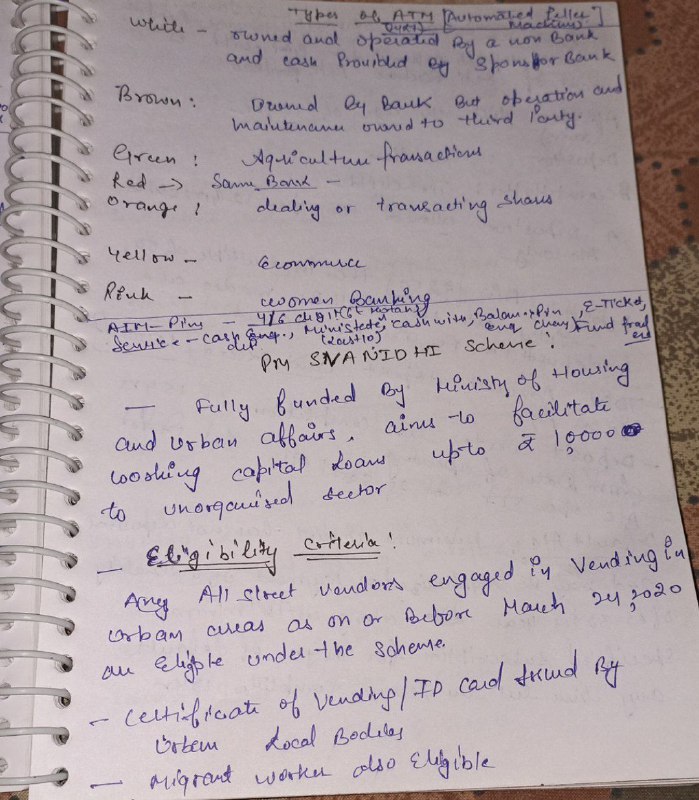 Types of ATM [Automated Teller Machine]
White - owned and operated By a non Bank
and cash Provided By Sponsor Bank
Brown : Owned By Bank But operation and
maintenance owned to third Party.
Green : Agriculture transactions
Red → Same Bank -
Orange : dealing or transacting shares
Yellow - Ecommerce
Pink - women Banking
ATM - Pin - 4/6 digit
Service - cash Ministatement, cash with, Balance enq, Pin change, E-Ticket, Fund
PM SVANIDHI Scheme :
— Fully funded By Ministy of Housing
and Urban affairs, aims to facilitate
working capital loans upto ₹ 10,000
to unorganised sector
— Eligibility criteria :
Any All Street vendors engaged in Vending in
Urban areas as on or Before March 24, 2020
are Eligible under the Scheme.
— Certificate of Vending / ID card Issued By
Urban Local Bodies
— Migrant worker also Eligible